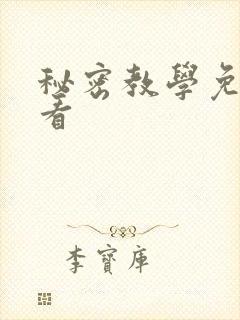 秘密教學免
看
李寶庫